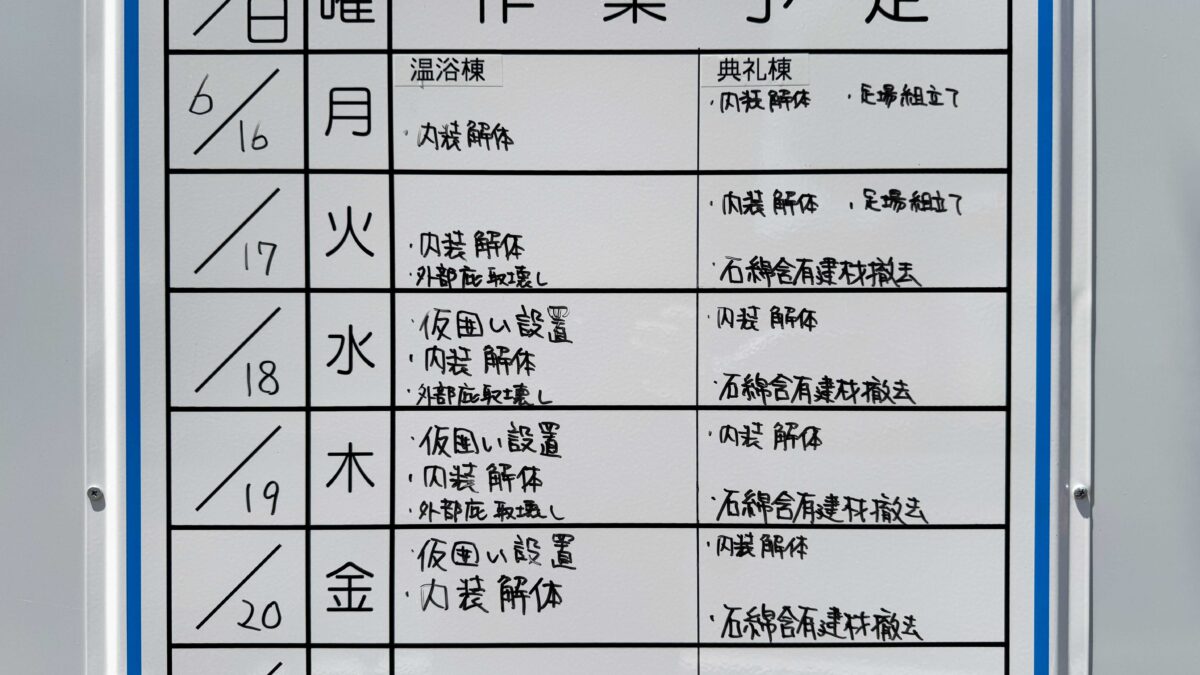 日 曜 作業予定
6/16 月 温浴棟 典礼棟
・内装解体 ・足場組立て
・内装解体
/17 火 ・内装解体 ・足場組立て
・内装解体
・外部庇取壊し ・石綿含有建材撤去
/18 水 ・仮囲い設置 ・内装解体
・内装解体
・外部庇取壊し ・石綿含有建材撤去
/19 木 ・仮囲い設置 ・内装解体
・内装解体
・外部庇取壊し ・石綿含有建材撤去
/20 金 ・仮囲い設置 ・内装解体
・内装解体
・石綿含有建材撤去